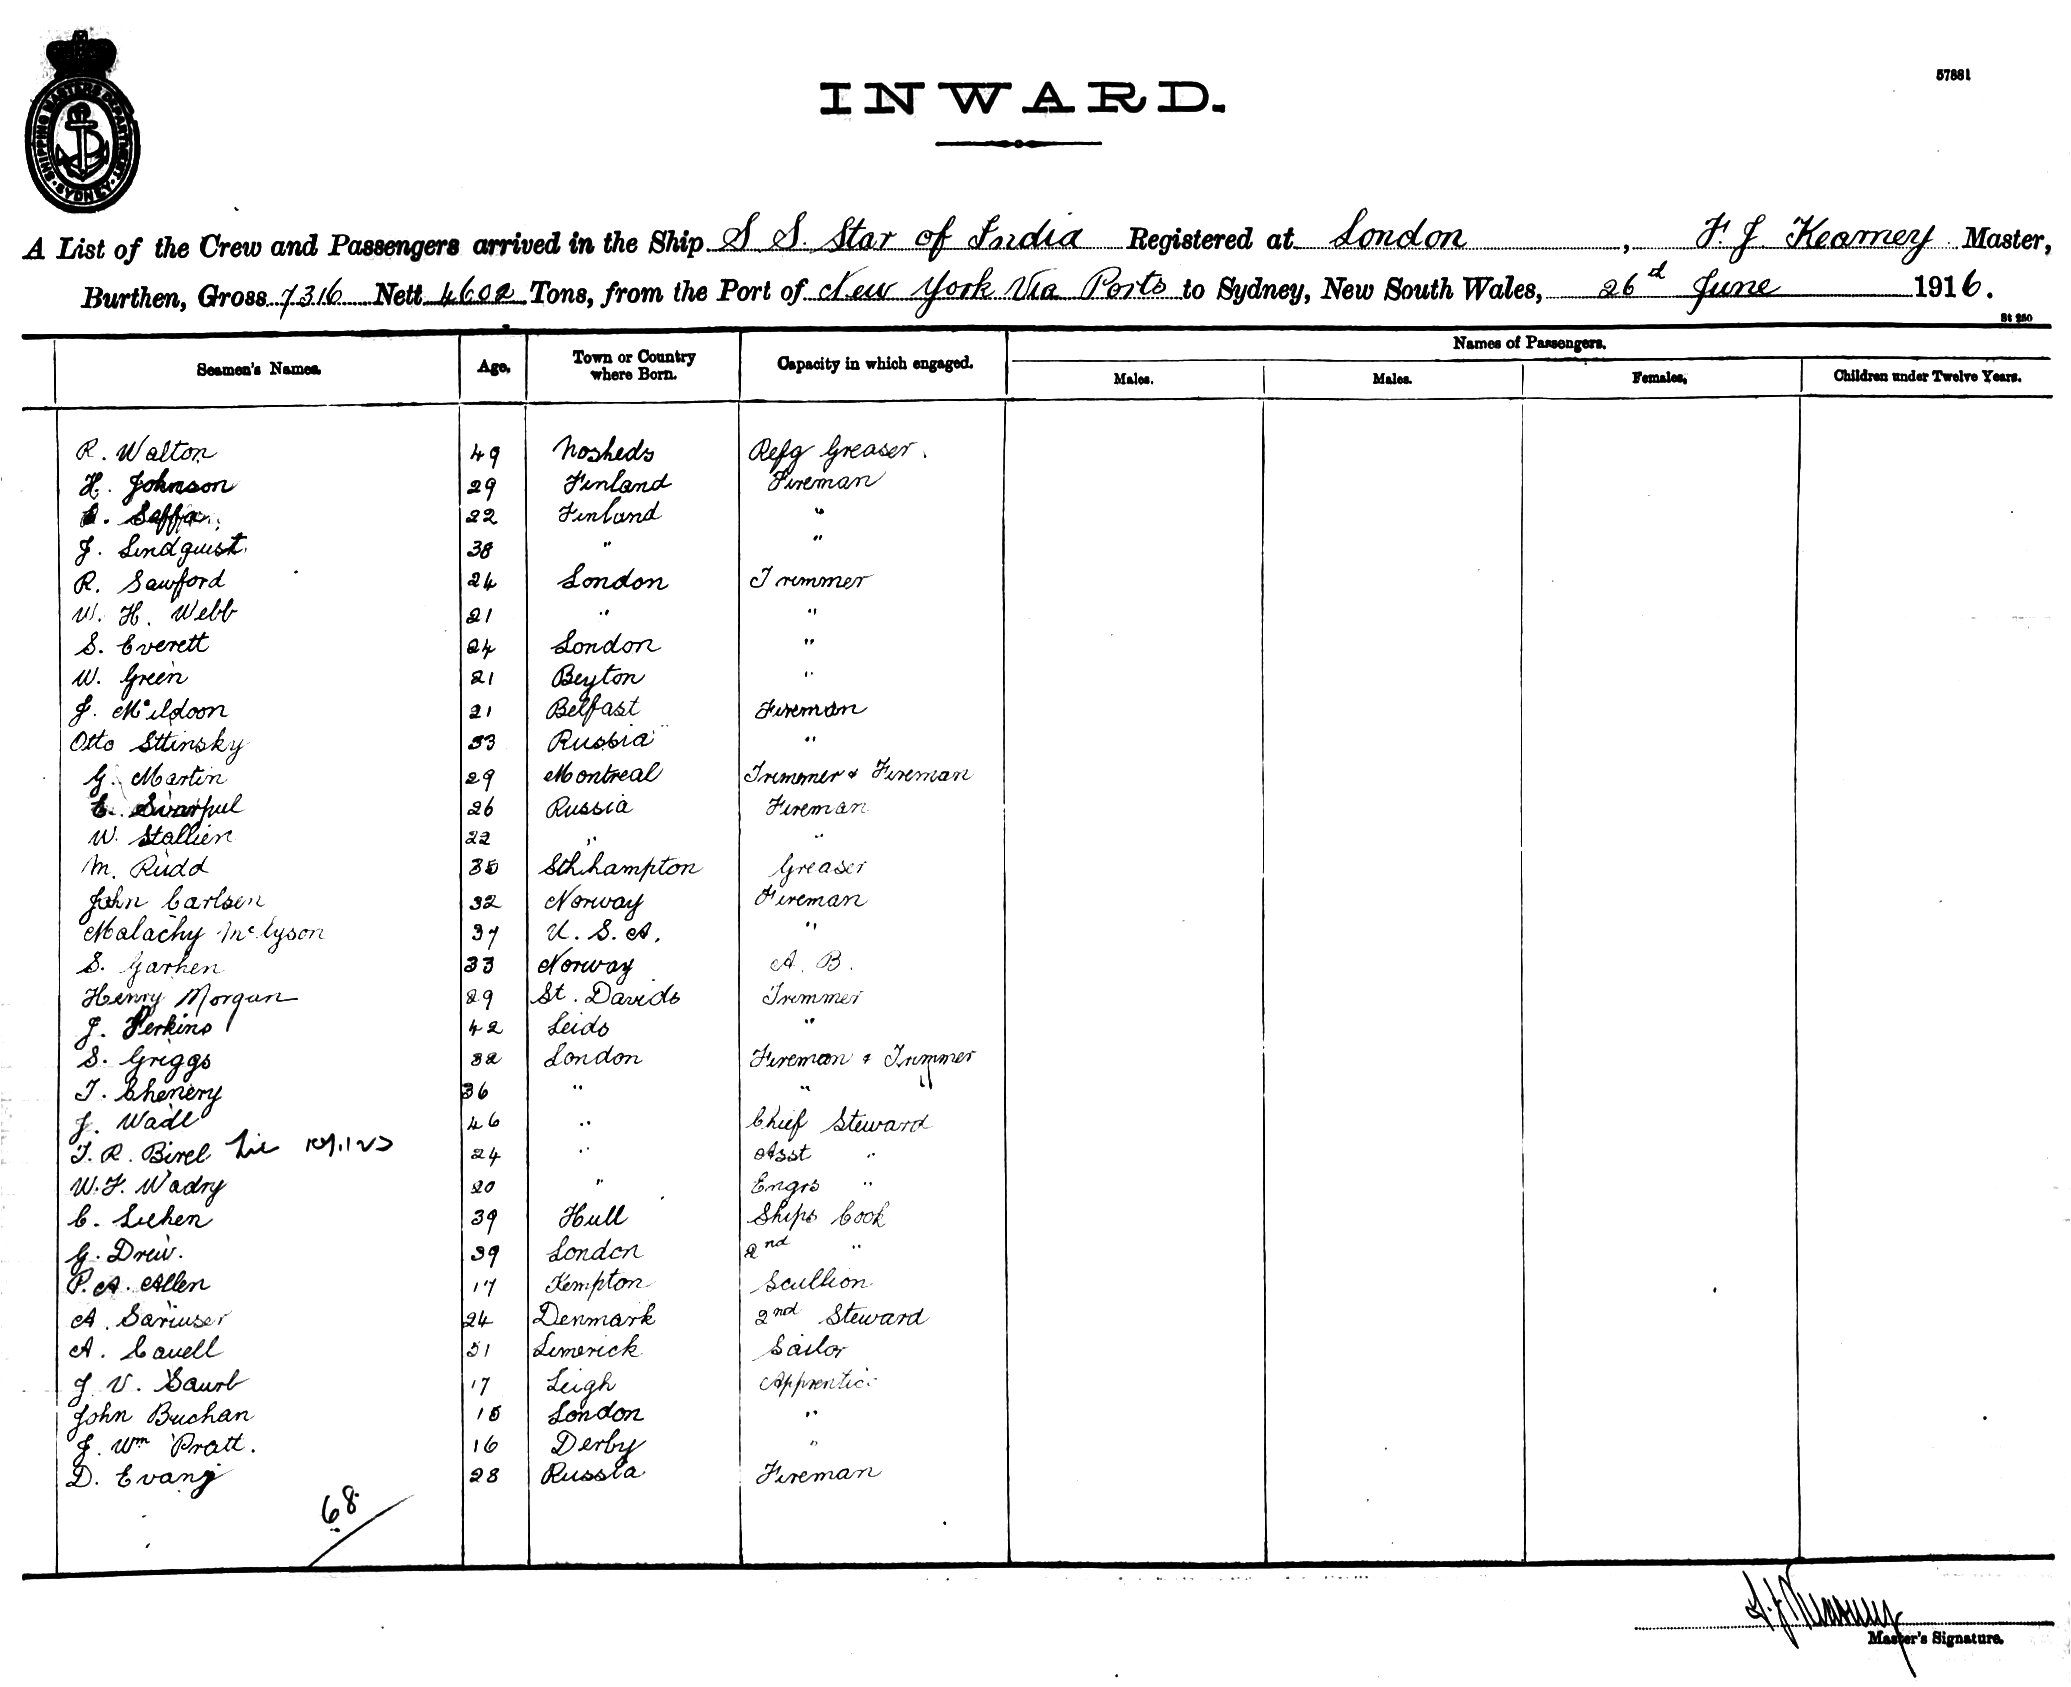 57881
SHIPPING MASTERS DEPARTMENT SYDNEY
INWARD.
A List of the Crew and Passengers arrived in the Ship S S. Star of India Registered at London, F. J Kearney Master,
Burthen, Gross 7316 Nett 4602 Tons, from the Port of New York Via Ports to Sydney, New South Wales, 26d June 1916.
St 250
Seamen's Names. Age. Town or Country where Born. Capacity in which engaged. Names of Passengers.
Males. Males. Females. Children under Twelve Years.
R. Walton 49 Refg Greaser.
H. Johnson 29 Finland Fireman
22 Finland "
J. Lindquist. 38 " "
R. Sawford 24 London Trimmer
W. H. Webb 21 " "
S. Everett 24 London "
W. Green 21 Beyton "
J. Mcildoon 21 Belfast Fireman
Otto Sttinsky 33 Russia "
G. Martin 29 Montreal Trimmer & Fireman
26 Russia Fireman
W. Stallien 22 " "
M. Rudd 35 Sthhampton Greaser
John Carlsen 32 Norway Fireman
Malachy 37 U. S. A. "
S. Garhen 33 Norway A. B.
Henry Morgan 29 St. Davids Trimmer
J. Perkins 42 Leids "
S. Griggs 32 London Fireman & Trimmer
T. Chenery 36 " " "
J. Wade 46 " Chief Steward
T. R. Birel 24 " Asst "
W. F. Wadry 20 " Engrs "
C. 39 Hull Ships Cook
G. Drew. 39 London 2nd "
P. A. Allen 17 Kempton Scullion
A. 24 Denmark 2nd Steward
A. Cauell 51 Limerick Sailor
J V. 17 Leigh Apprentice
John Buchan 15 London "
J. Wm Pratt. 16 Derby "
D. Evans 28 Russia Fireman
68
Master's Signature.